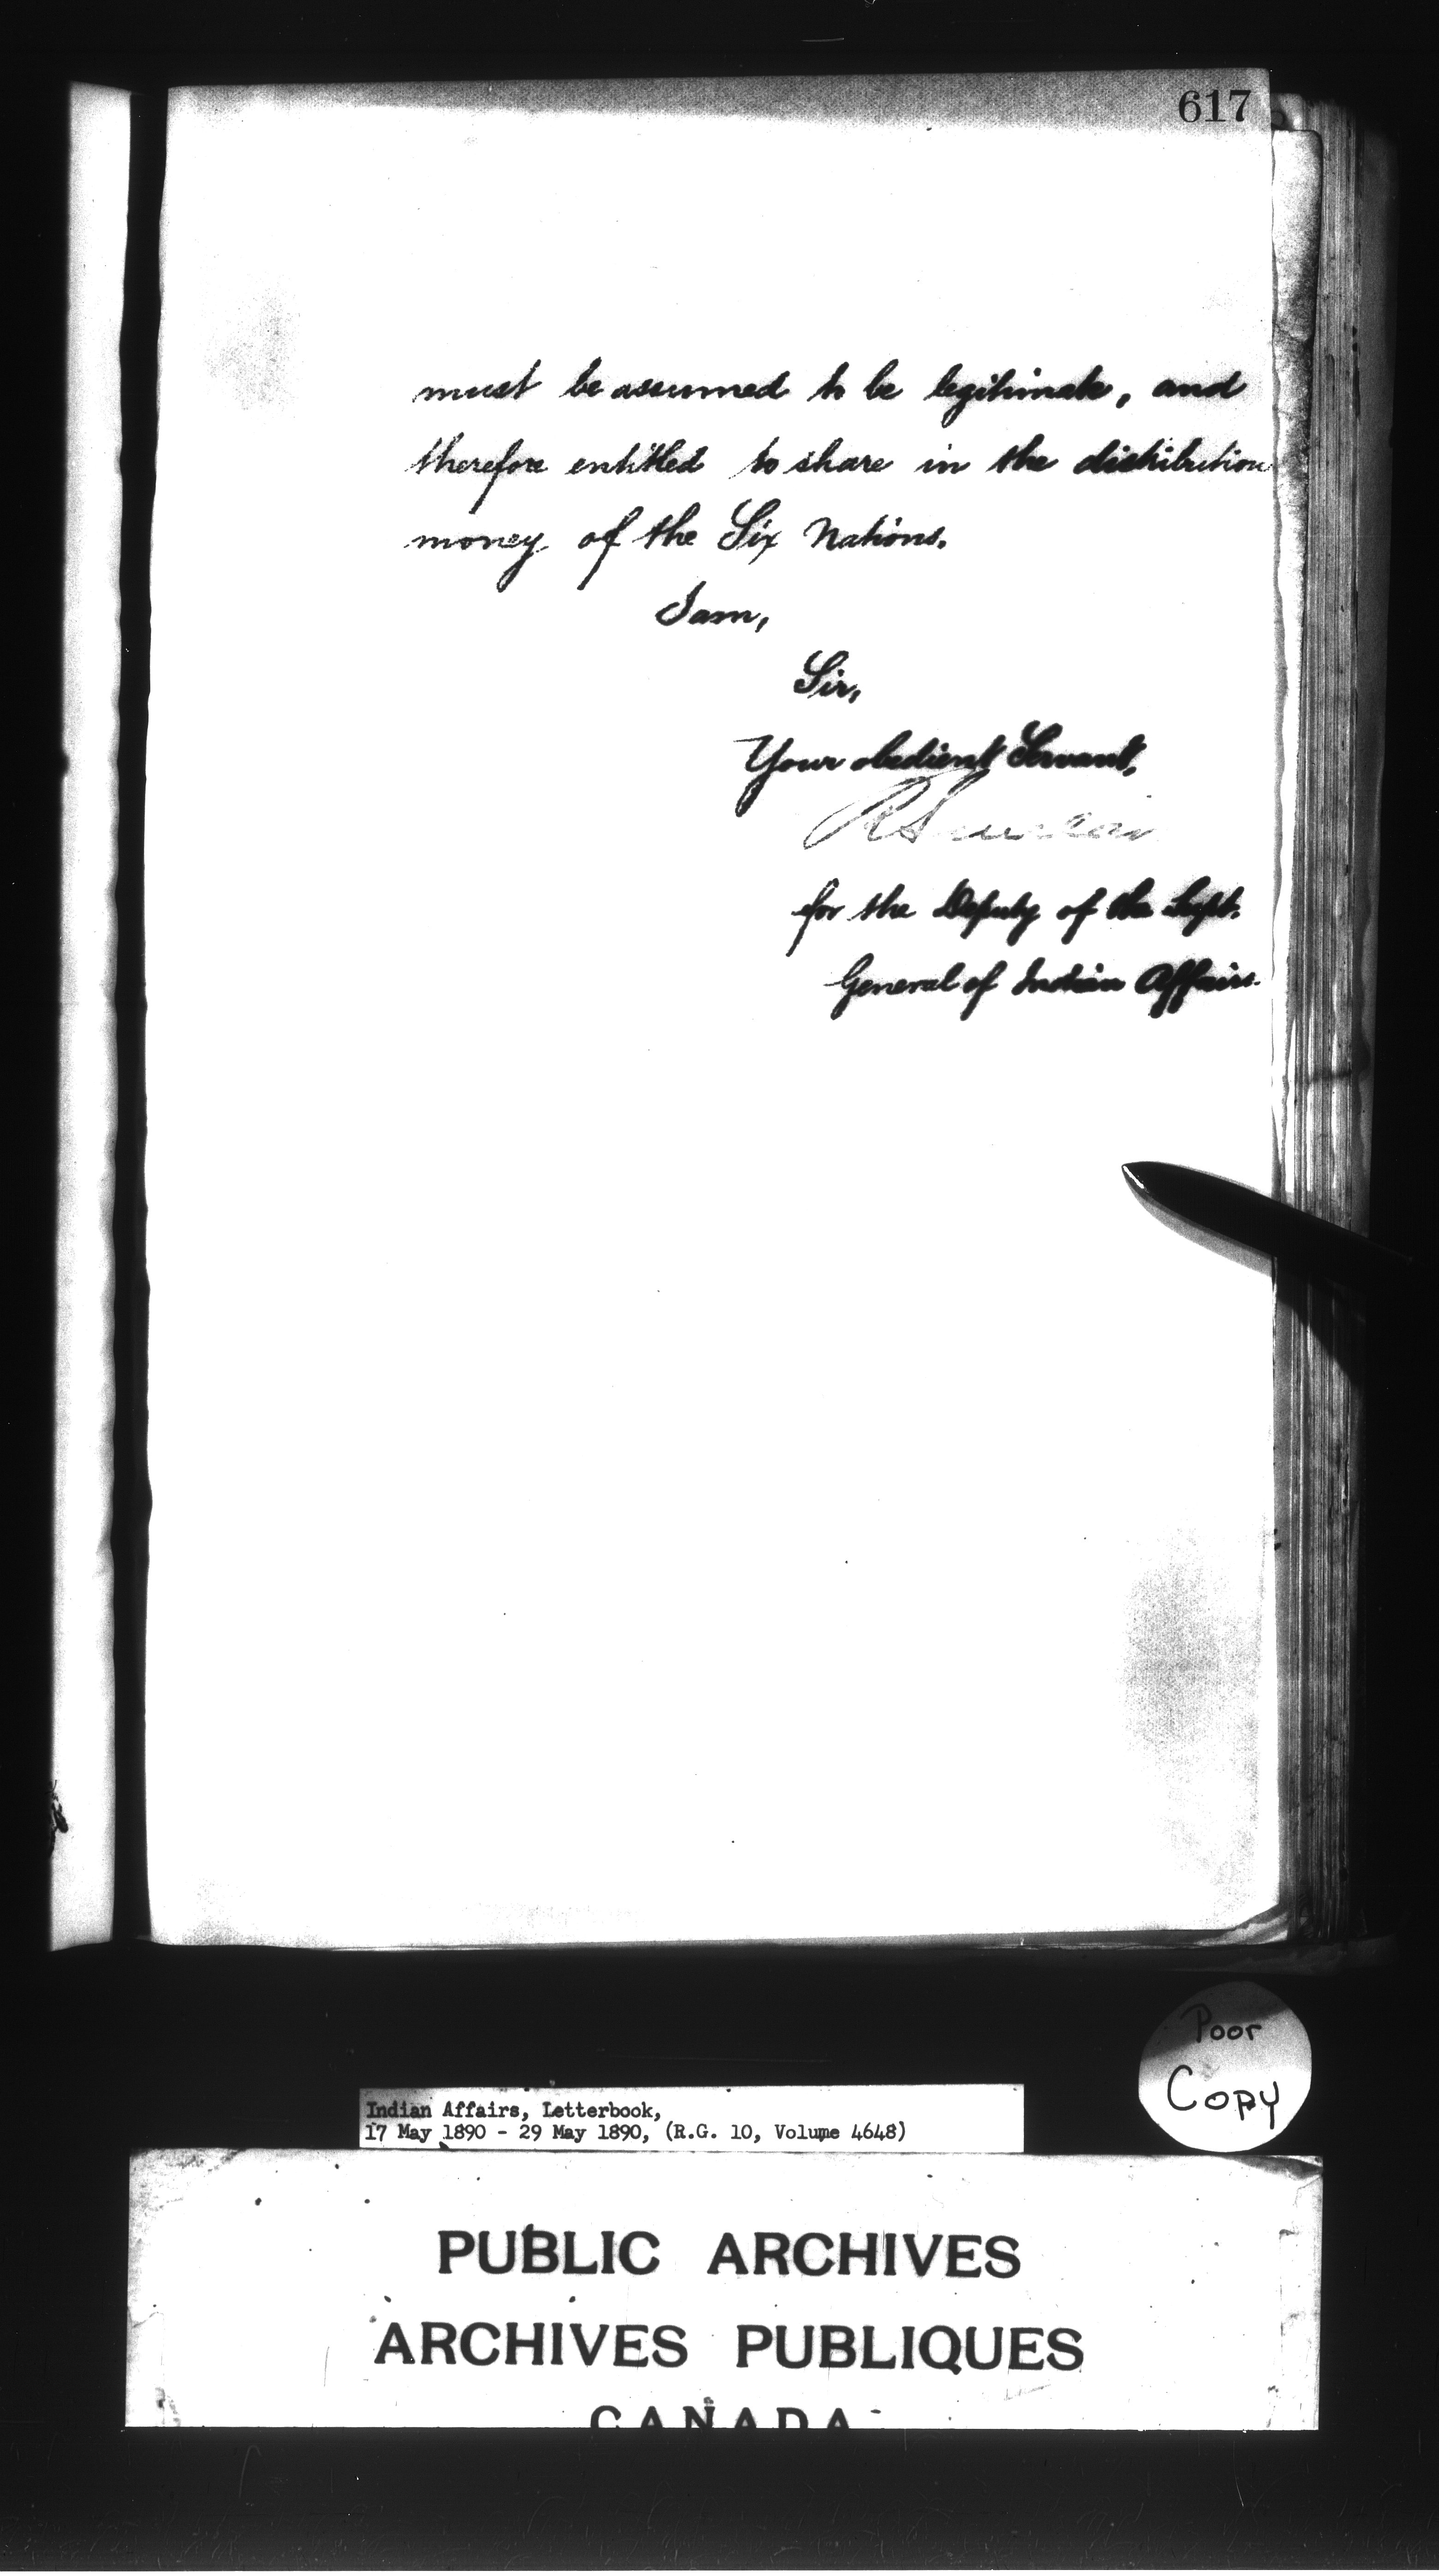 617
must be assumed to be legitimate, and
therefore entitled to share in the distribution
money of the Six Nations.
I am,
Sir,
Your obedient Servant,
for the Deputy of the Supt.
General of Indian Affairs.
Poor
Copy
Indian Affairs, Letterbook,
17 May 1890 - 29 May 1890, (R.G. 10, Volume 4648)
PUBLIC ARCHIVES
ARCHIVES PUBLIQUES
CANADA